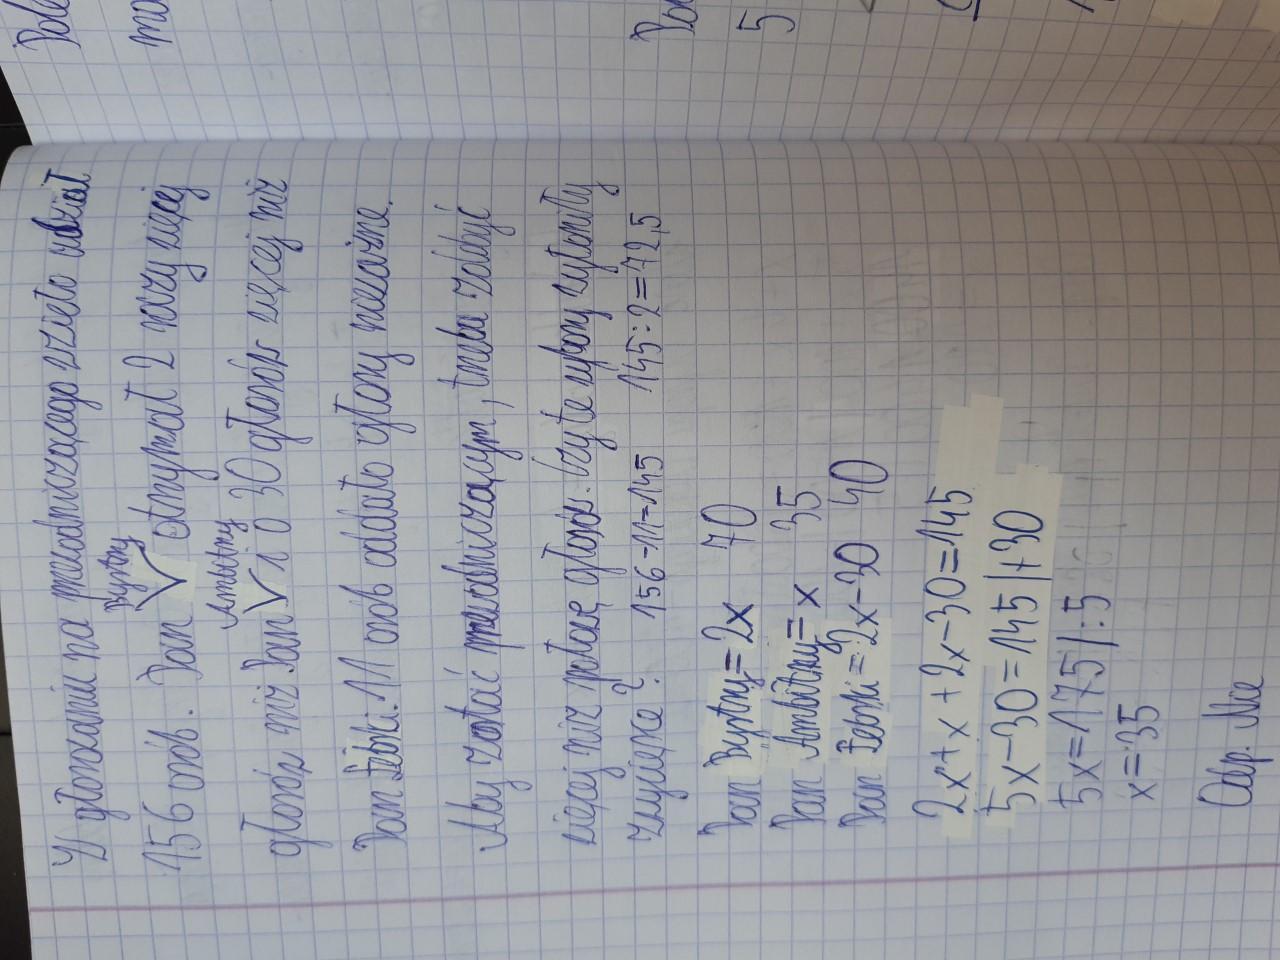 W głosowaniu na przewodniczącego wzięło udział
Bystry
156 osób. Pan V otrzymał 2 razy więcej
Ambitny
głosów niż Pan V i o 30 głosów więcej niż
Pan Febski. 11 osób oddało głosy nieważne.
Aby zostać przewodniczącym, trzeba zdobyć
więcej niż połowę głosów. Czy te wybory wyłoniły
zwycięzcę? 156-11=145 145:2=72,5
Pan Bystry=2x 70
Pan Ambitny=x 35
Pan Febski=2x-30 40
2x+x+2x-30=145
5x-30=145 |+30
5x=175 |:5
x=35
Odp. Nie
Pan
5